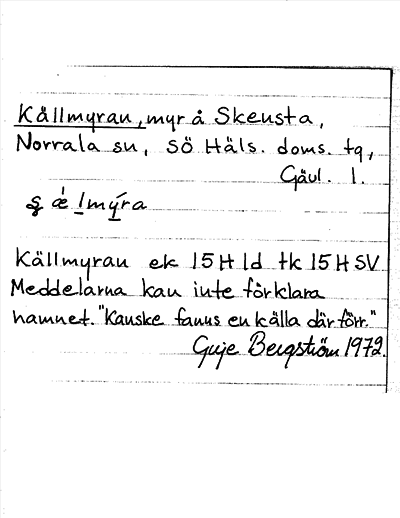 Källmyran, myr å Skensta,
Norrala sn, SÖ Häls. doms. tg,
Gävl. l.
ʂ ǽ lmýra
Källmyran ek 15H 1d tk 15H SV
Meddelarna kan inte förklara
namnet. "Kanske fanns en källa där förr."
Guje Bergström 1972.